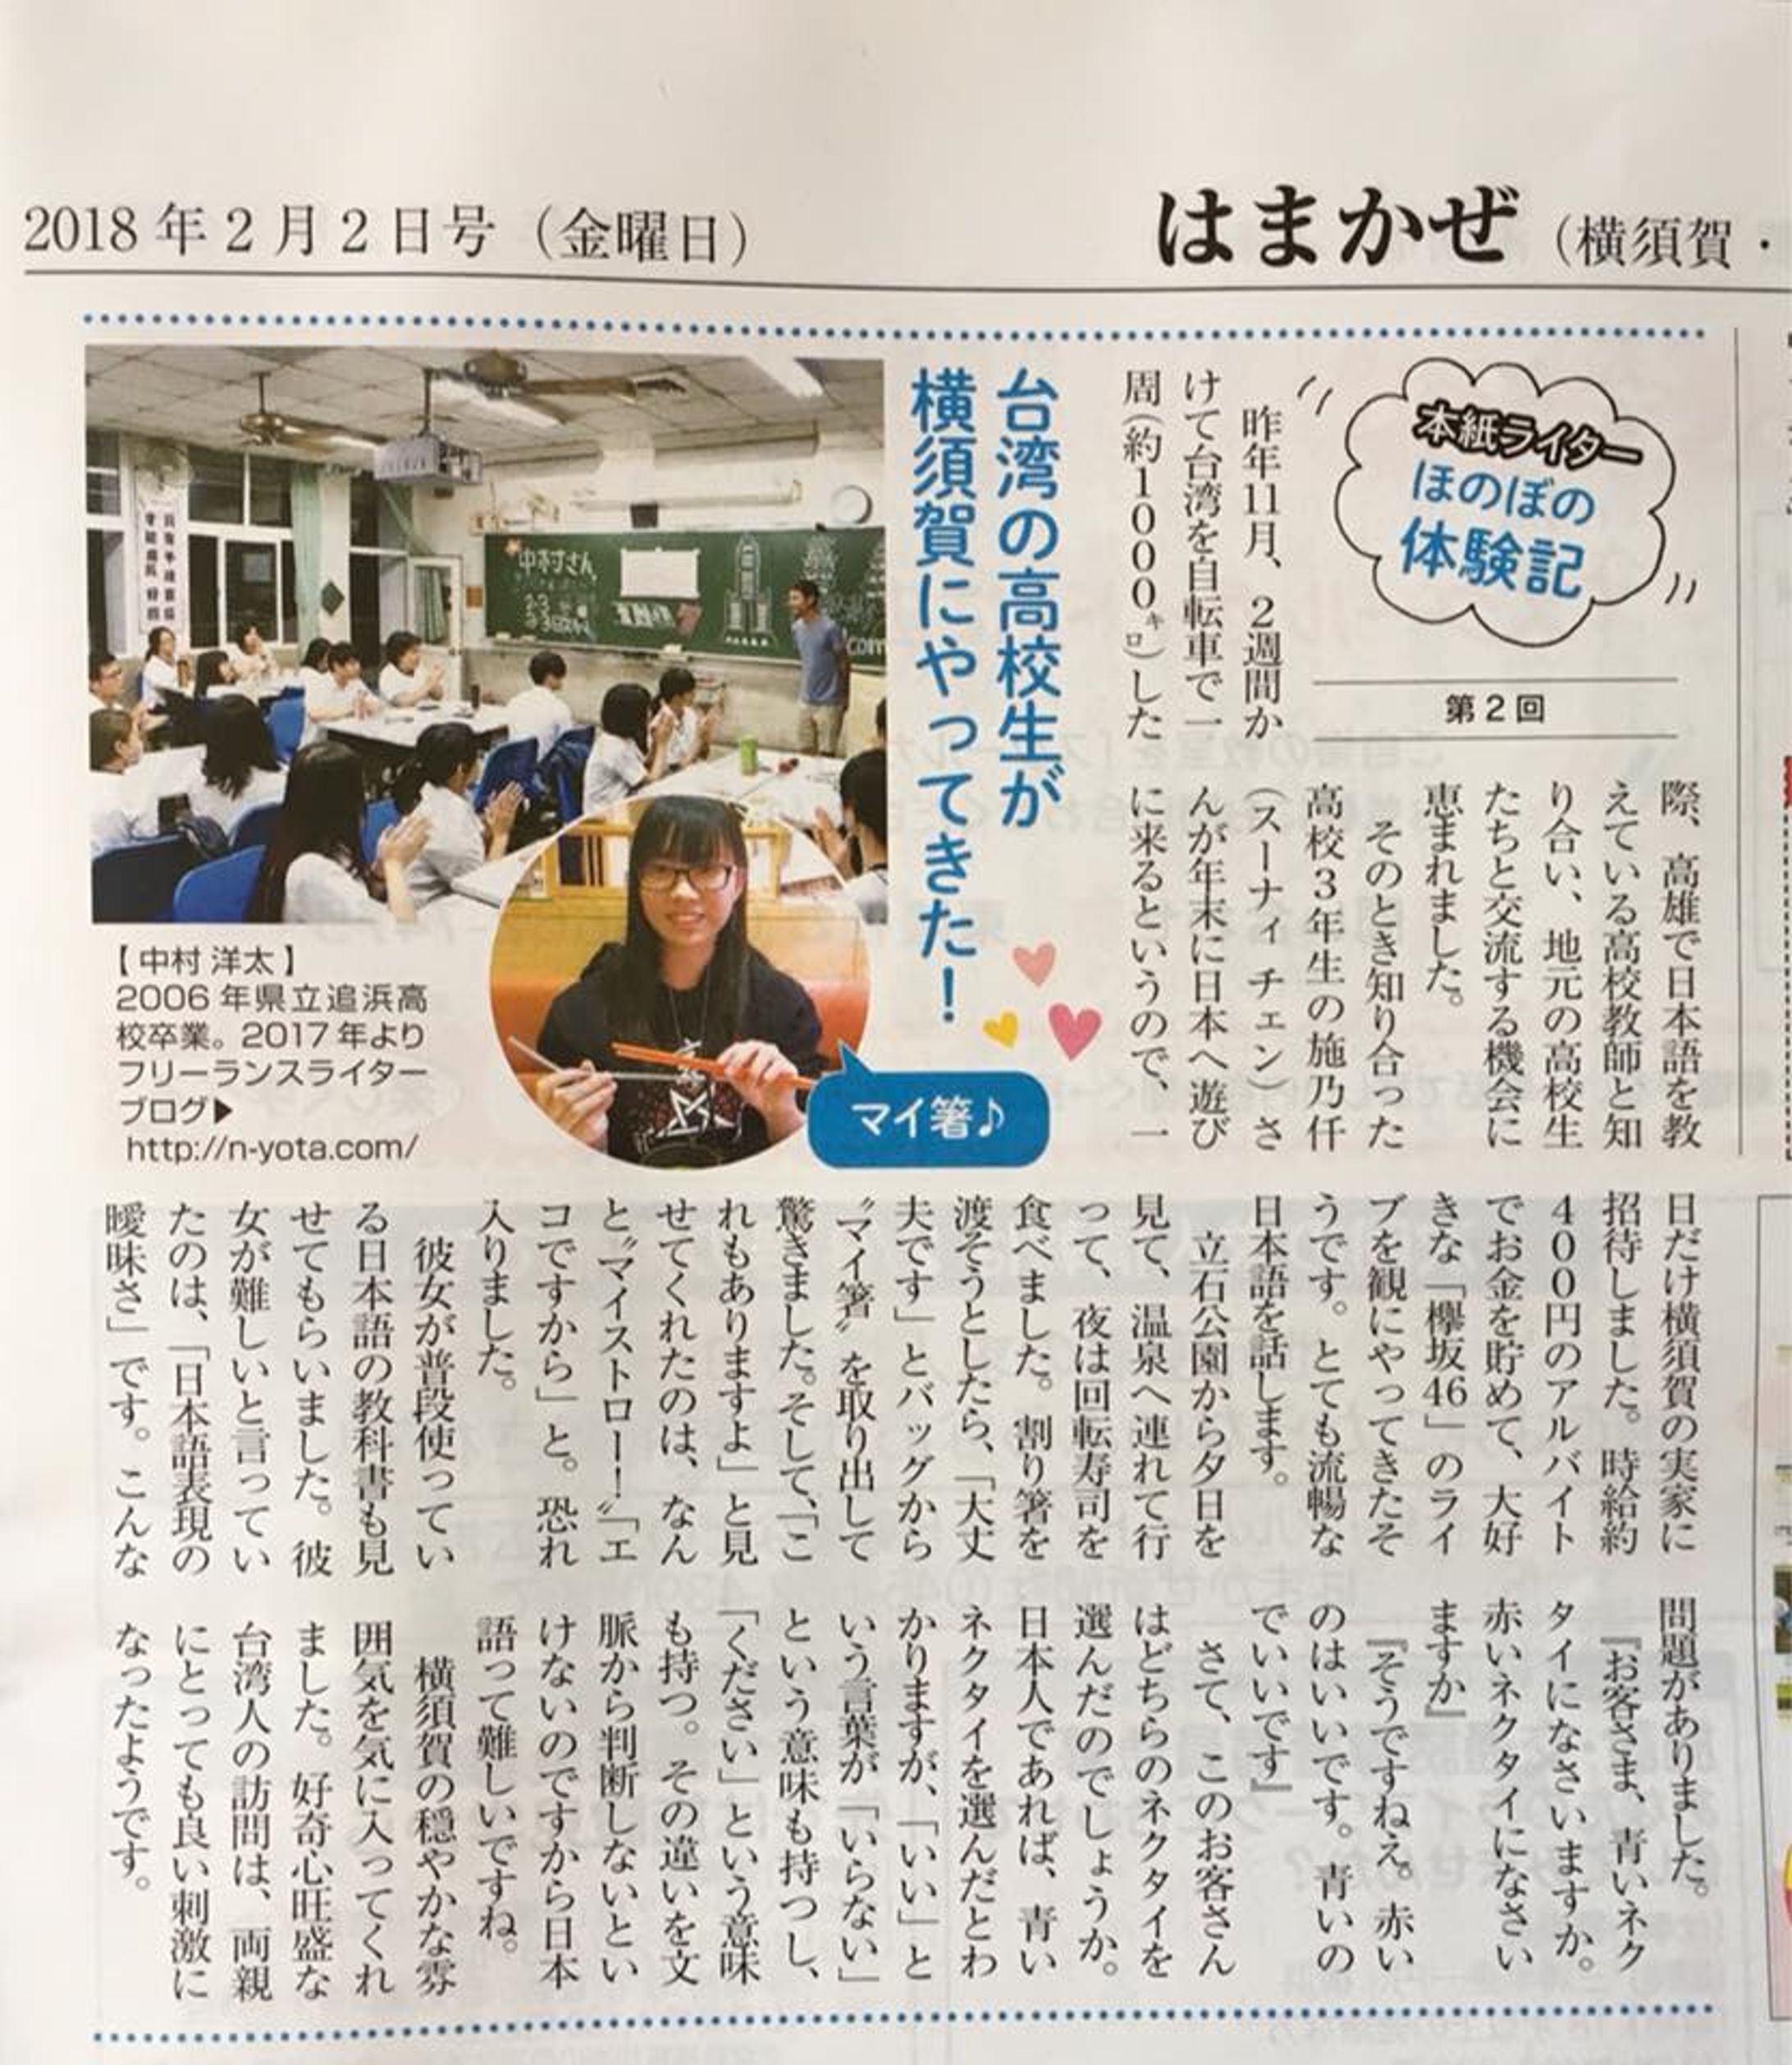 2018年2月2日号（金曜日）
はまかぜ（横須賀・
本紙ライター
ほのぼの
体験記
第2回
台湾の高校生が
横須賀にやってきた！
昨年11月、2週間か
けて台湾を自転車で一
周（約1000キロ）した
際、高雄で日本語を教
えている高校教師と知
り合い、地元の高校生
たちと交流する機会に
恵まれました。
そのとき知り合った
高校3年生の施乃仟
（スーナィ チェン）さ
んが年末に日本へ遊び
に来るというので、一
日だけ横須賀の実家に
招待しました。時給約
400円のアルバイト
でお金を貯めて、大好
きな「欅坂46」のライ
ブを観にやってきたそ
うです。とても流暢な
日本語を話します。
立石公園から夕日を
見て、温泉へ連れて行
って、夜は回転寿司を
食べました。割り箸を
渡そうとしたら、「大丈
夫です」とバッグから
〝マイ箸〟を取り出して
驚きました。そして、「こ
れもありますよ」と見
せてくれたのは、なん
と〝マイストロー！〟「エ
コですから」と。恐れ
入りました。
彼女が普段使ってい
る日本語の教科書も見
せてもらいました。彼
女が難しいと言ってい
たのは、「日本語表現の
曖昧さ」です。こんな
問題がありました。
『お客さま、青いネク
タイになさいますか。
赤いネクタイになさい
ますか』
『そうですねえ。赤い
のはいいです。青いの
でいいです』
さて、このお客さん
はどちらのネクタイを
選んだのでしょうか。
日本人であれば、青い
ネクタイを選んだとわ
かりますが、「いい」と
いう言葉が「いらない」
という意味も持つし、
「ください」という意味
も持つ。その違いを文
脈から判断しないとい
けないのですから日本
語って難しいですね。
横須賀の穏やかな雰
囲気を気に入ってくれ
ました。好奇心旺盛な
台湾人の訪問は、両親
にとっても良い刺激に
なったようです。
中村さん
com
マイ箸♪
【中村 洋太】
2006年県立追浜高
校卒業。2017年より
フリーランスライター
ブログ▶
http://n-yota.com/